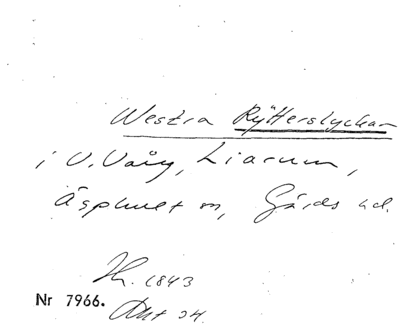 Westra Rytterslyckan
i V. Vång, Liarum,
Äsphult sn, Gärds hd.
Th. 1843
Nr 7966. Akt 24.